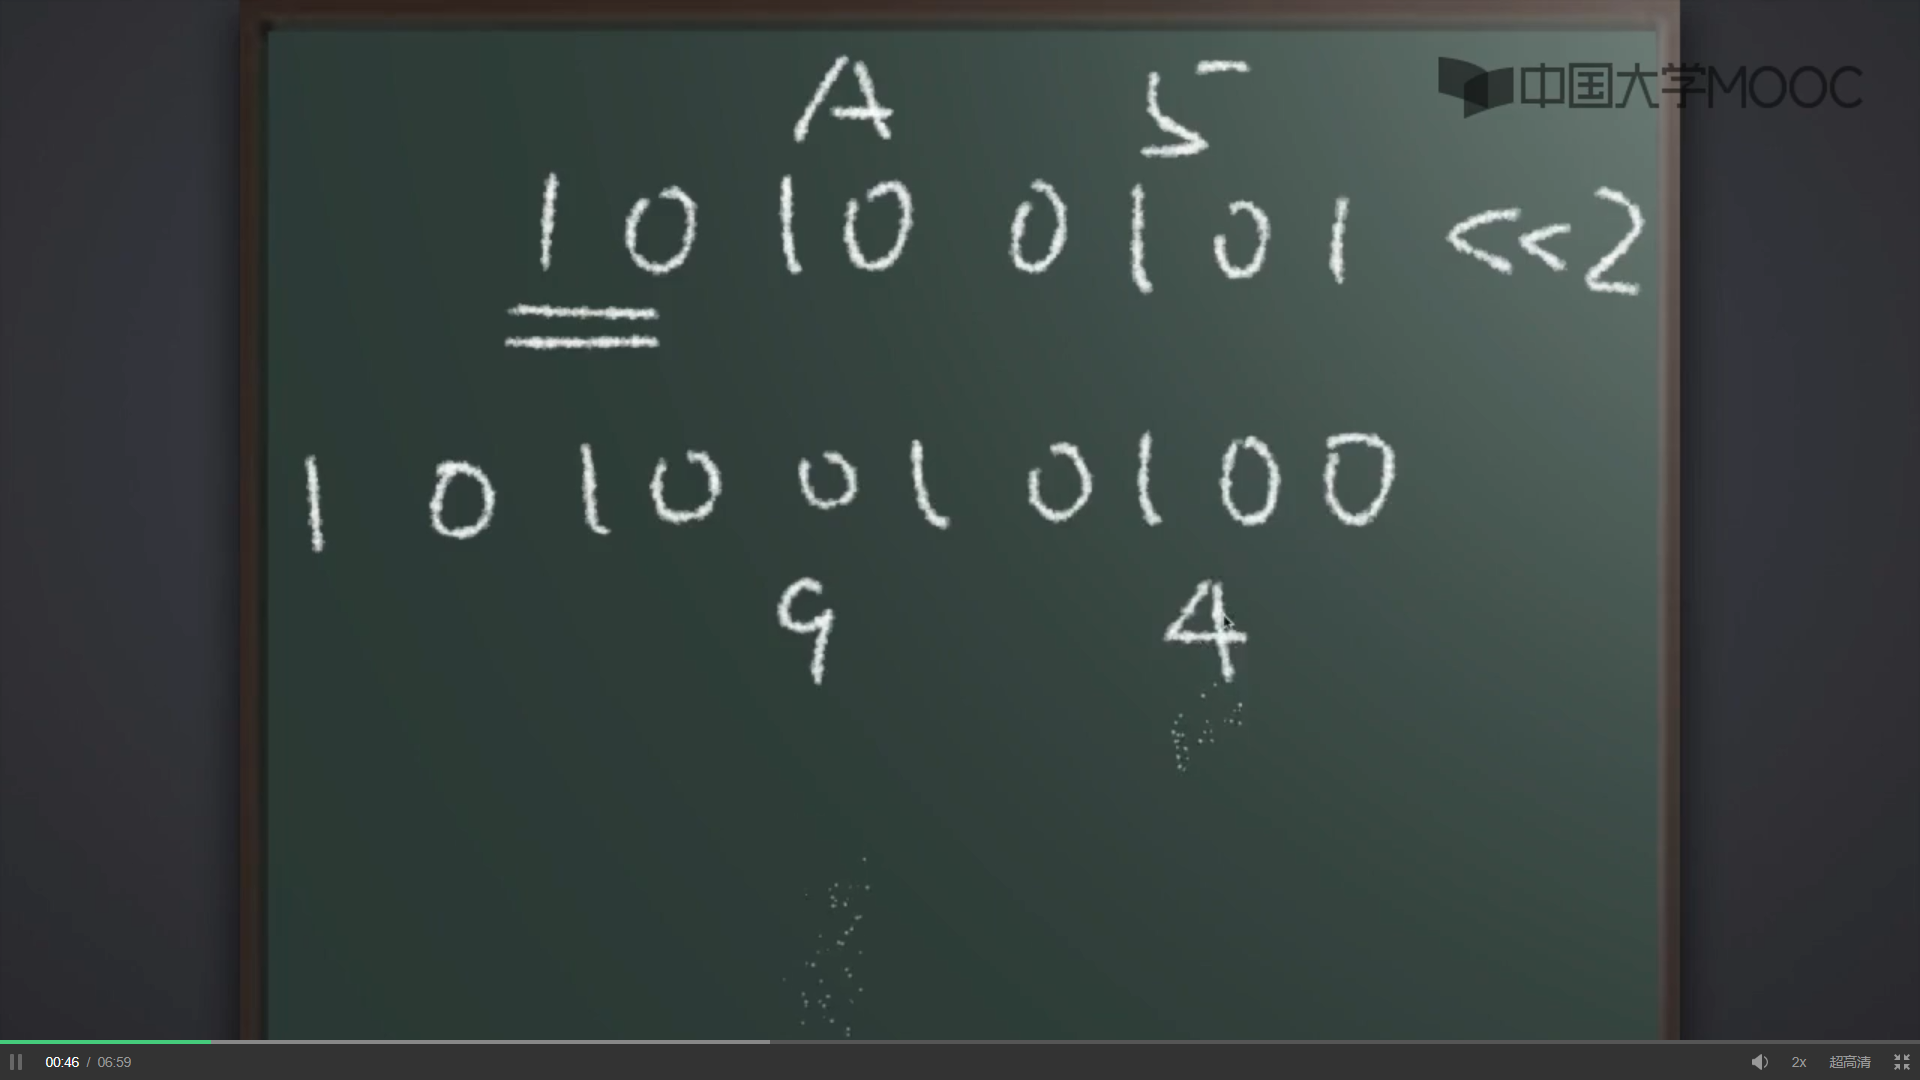 A 5
中国大学MOOC
1 0 1 0 0 1 0 1 <<2
1 0 1 0 0 1 0 1 0 0
9 4
00:46 / 06:59
2x 超高清